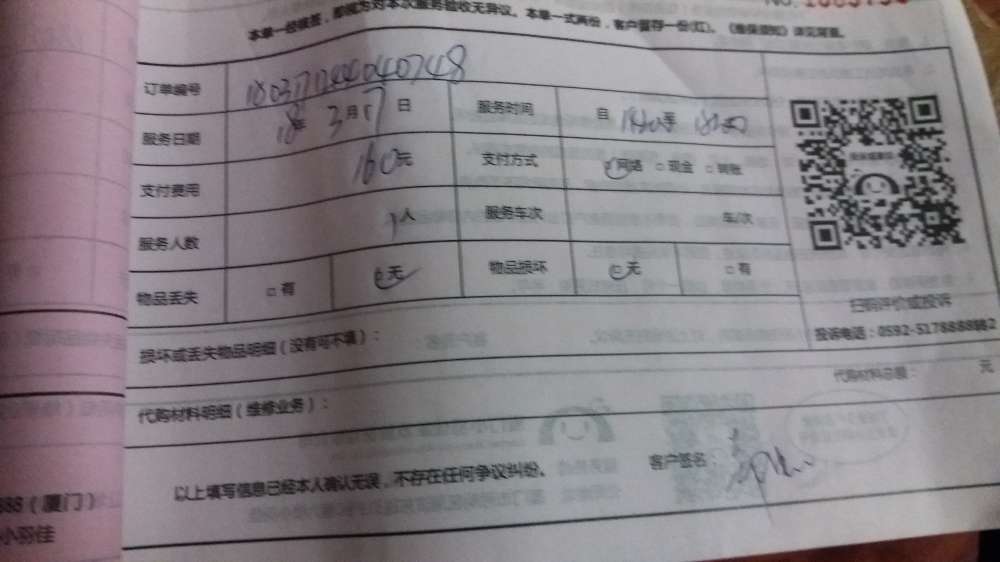 本单一经核签，即视为对本次服务验收无异议。本单一式两份，客户留存一份(红)。《维保须知》详见背面。
订单编号 1803171244040748
服务日期 18年 3月17日 服务时间 自 至
支付费用 160元 支付方式 网络 □现金 □转账
服务人数 1人 服务车次 车/次
物品丢失 □有 □无 物品损坏 □无 □有
扫码评价或投诉
投诉电话：0592-5178888转2
损坏或丢失物品明细（没有可不填）：
代购材料明细（维修业务）： 代购材料总额： 元
以上填写信息已经本人确认无误，不存在任何争议纠纷。 客户签名
888（厦门）
小羽佳